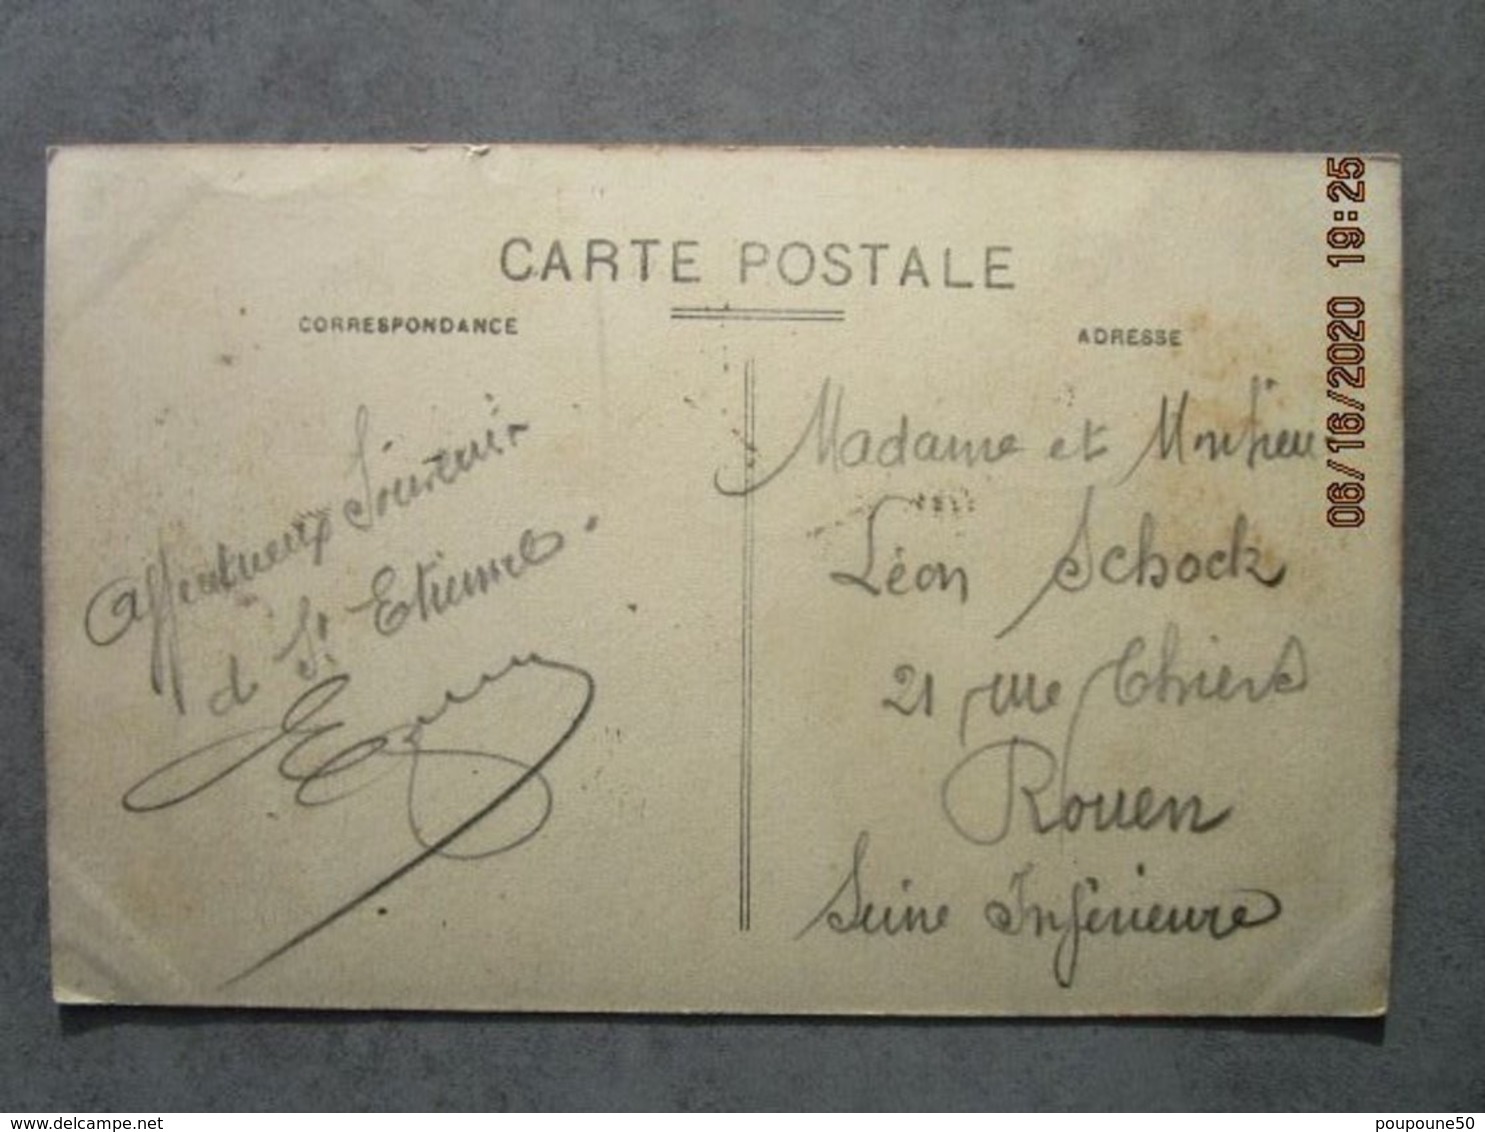 CARTE POSTALE
CORRESPONDANCE
Affectueux Souvenir
de St Etienne.
ADRESSE
Madame et Monsieur
Léon Schock
21 rue Thiers
Rouen
Seine Inférieure
06/16/2020 19:25
delcampe.net
poupoune50